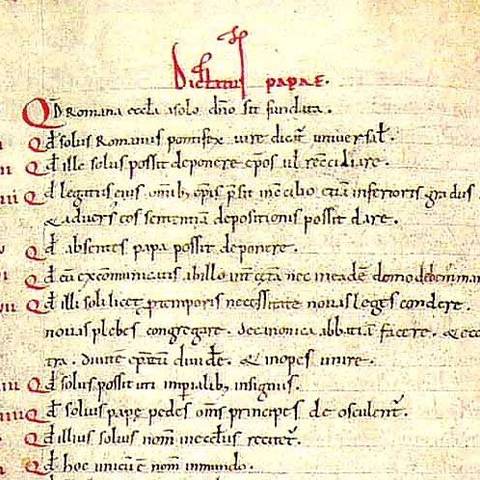 Dictatus papae.
QD Romana eccla a solo dno sit fundata.
Qd solus Romanus pontifex iure dicat universal.
Qd ille solus possit deponere epos ul reconciliare.
Qd legatus eius omib epis psit in concilio etiam inferioris gradus
& adversus eos sententiam depositionis possit dare.
Qd absentes papa possit deponere.
Qd cu excomunicatis ab illo int cetera nec in eade domo debem
Qd illi soli licet p temporis necessitate novas leges condere.
novas plebes congregare. de canonica abbatia facere. & eco
tra. divite epatu divide. & inopes unire.
Qd solus possit uti impialib insigniis.
Qd solius pape pedes oms principes deosculent.
Qd illius solius nom in ecclis recitet.
Qd hoc unicu e nom in mundo.